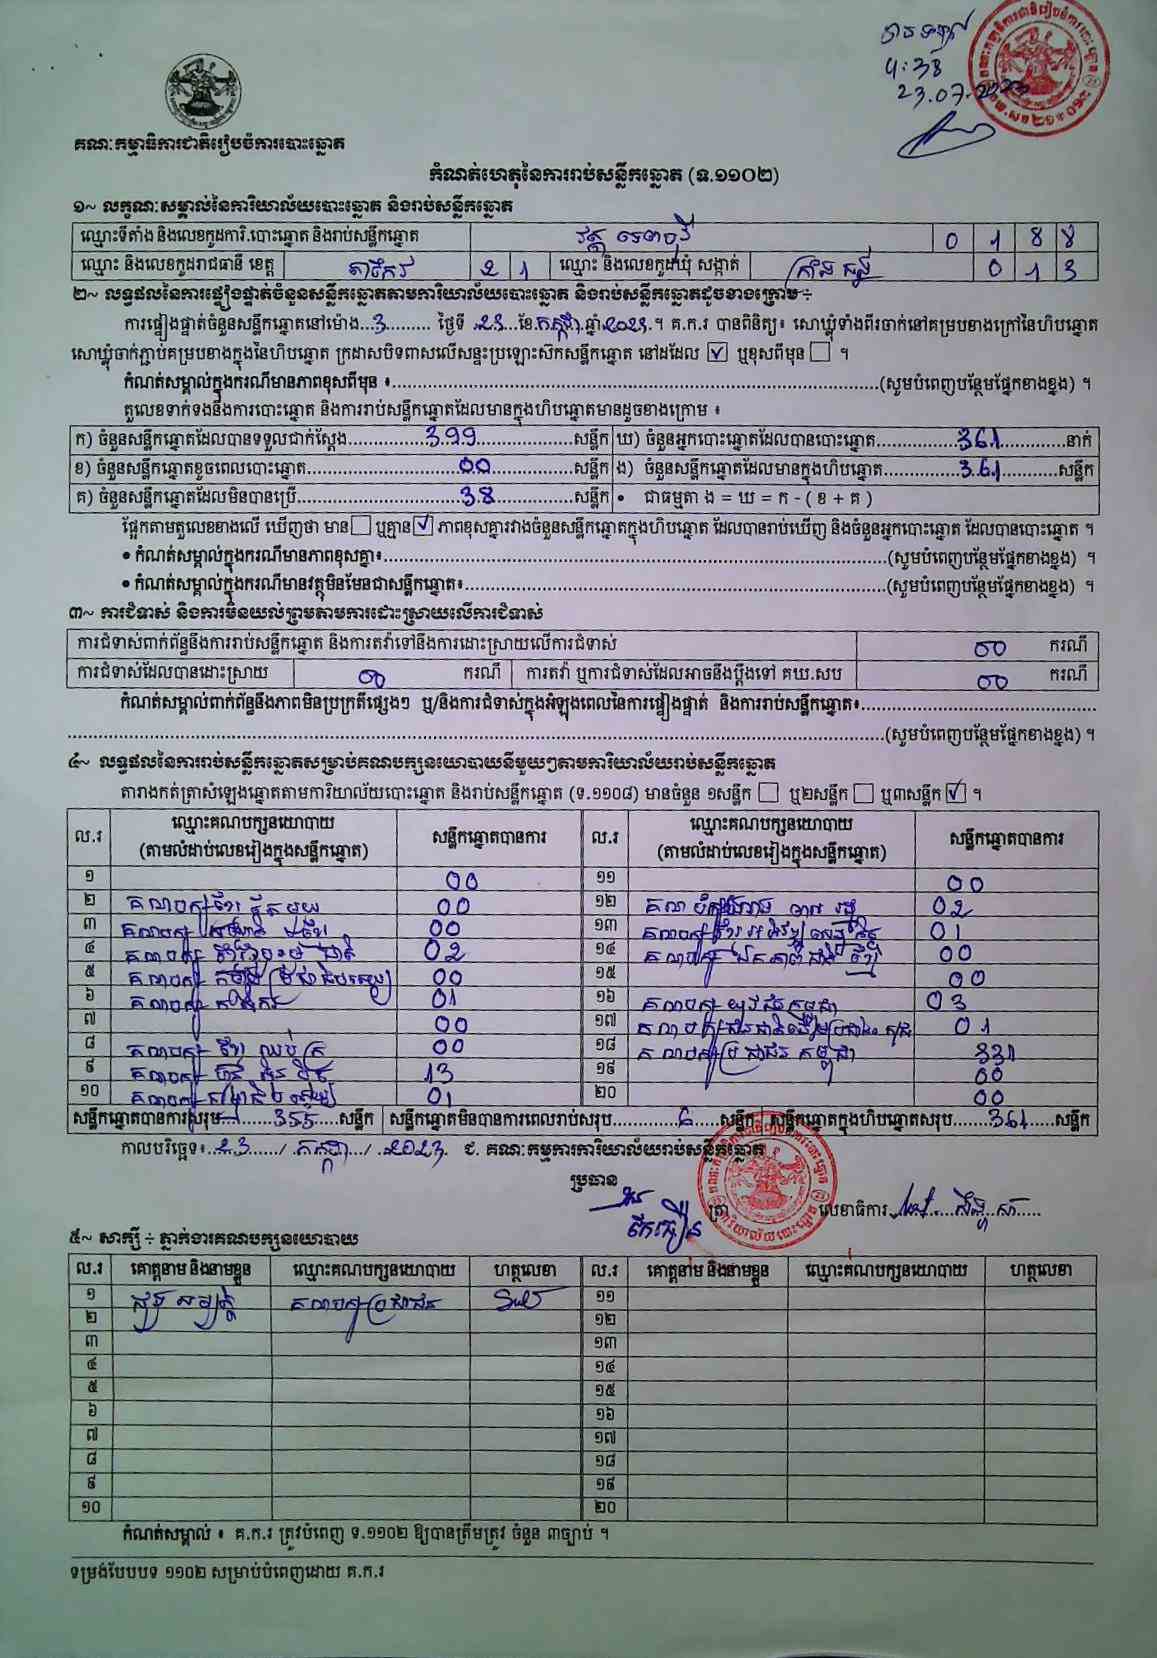 4:38
23.07.2023
គណៈកម្មាធិការជាតិរៀបចំការបោះឆ្នោត
កំណត់ហេតុនៃការរាប់សន្លឹកឆ្នោត (ទ.១១០២)
១~ លក្ខណៈសម្គាល់នៃការិយាល័យបោះឆ្នោត និងរាប់សន្លឹកឆ្នោត
ឈ្មោះទីតាំង និងលេខកូដការិ.បោះឆ្នោត និងរាប់សន្លឹកឆ្នោត វត្ត 0 1 8 8
ឈ្មោះ និងលេខកូដរាជធានី ខេត្ត តាកែវ 2 1 ឈ្មោះ និងលេខកូដឃុំ សង្កាត់ 0 1 3
២~ លទ្ធផលនៃការផ្ទៀងផ្ទាត់ចំនួនសន្លឹកឆ្នោតតាមការិយាល័យបោះឆ្នោត និងរាប់សន្លឹកឆ្នោតដូចខាងក្រោម ÷
ការផ្ទៀងផ្ទាត់ចំនួនសន្លឹកឆ្នោតនៅម៉ោង...3......... ថ្ងៃទី..23..ខែ.កក្កដា.ឆ្នាំ.2023.។ គ.ក.រ បានពិនិត្យ៖ សោឃ្លុំទាំងពីរចាក់នៅគម្របខាងក្រៅនៃហិបឆ្នោត
សោឃ្លុំចាក់ភ្ជាប់គម្របខាងក្នុងនៃហិបឆ្នោត ក្រដាសបិទពាសលើសន្ទះប្រឡោះស៊កសន្លឹកឆ្នោត នៅដដែល ☑ ឬខុសពីមុន ☐ ។
កំណត់សម្គាល់ក្នុងករណីមានភាពខុសពីមុន ៖.......(សូមបំពេញបន្ថែមផ្នែកខាងខ្នង) ។
តួលេខទាក់ទងនឹងការបោះឆ្នោត និងការរាប់សន្លឹកឆ្នោតដែលមានក្នុងហិបឆ្នោតមានដូចខាងក្រោម ៖
ក) ចំនួនសន្លឹកឆ្នោតដែលបានទទួលជាក់ស្តែង.......399.......សន្លឹក ឃ) ចំនួនអ្នកបោះឆ្នោតដែលបានបោះឆ្នោត.......361.......នាក់
ខ) ចំនួនសន្លឹកឆ្នោតខូចពេលបោះឆ្នោត.......00.......សន្លឹក ង) ចំនួនសន្លឹកឆ្នោតដែលមានក្នុងហិបឆ្នោត.......361.......សន្លឹក
គ) ចំនួនសន្លឹកឆ្នោតដែលមិនបានប្រើ.......38.......សន្លឹក • ជាធម្មតា ង = ឃ = ក - ( ខ + គ )
ផ្អែកតាមតួលេខខាងលើ ឃើញថា មាន☐ ឬគ្មាន☑ ភាពខុសគ្នារវាងចំនួនសន្លឹកឆ្នោតក្នុងហិបឆ្នោត ដែលបានរាប់ឃើញ និងចំនួនអ្នកបោះឆ្នោត ដែលបានបោះឆ្នោត ។
• កំណត់សម្គាល់ក្នុងករណីមានភាពខុសគ្នា៖.......(សូមបំពេញបន្ថែមផ្នែកខាងខ្នង) ។
• កំណត់សម្គាល់ក្នុងករណីមានវត្ថុមិនមែនជាសន្លឹកឆ្នោត៖.......(សូមបំពេញបន្ថែមផ្នែកខាងខ្នង) ។
៣~ ការជំទាស់ និងការមិនយល់ព្រមតាមការដោះស្រាយលើការជំទាស់
ការជំទាស់ពាក់ព័ន្ធនឹងការរាប់សន្លឹកឆ្នោត និងការតវ៉ាទៅនឹងការដោះស្រាយលើការជំទាស់ 00 ករណី
ការជំទាស់ដែលបានដោះស្រាយ 00 ករណី ការតវ៉ា ឬការជំទាស់ដែលអាចនឹងប្តឹងទៅ គឃ.សប 00 ករណី
កំណត់សម្គាល់ពាក់ព័ន្ធនឹងភាពមិនប្រក្រតីផ្សេងៗ ឬ/និងការជំទាស់ក្នុងអំឡុងពេលនៃការផ្ទៀងផ្ទាត់ និងការរាប់សន្លឹកឆ្នោត៖.......
.......(សូមបំពេញបន្ថែមផ្នែកខាងខ្នង) ។
៤~ លទ្ធផលនៃការរាប់សន្លឹកឆ្នោតសម្រាប់គណបក្សនយោបាយនីមួយៗតាមការិយាល័យរាប់សន្លឹកឆ្នោត
តារាងកត់ត្រាសំឡេងឆ្នោតតាមការិយាល័យបោះឆ្នោត និងរាប់សន្លឹកឆ្នោត (ទ.១១០៨) មានចំនួន ១សន្លឹក ☐ ឬ២សន្លឹក ☐ ឬ៣សន្លឹក ☑ ។
ល.រ ឈ្មោះគណបក្សនយោបាយ (តាមលំដាប់លេខរៀងក្នុងសន្លឹកឆ្នោត) សន្លឹកឆ្នោតបានការ ល.រ ឈ្មោះគណបក្សនយោបាយ (តាមលំដាប់លេខរៀងក្នុងសន្លឹកឆ្នោត) សន្លឹកឆ្នោតបានការ
១ 00 ១១ 00
២ គណបក្ស ខ្មែរ តែមួយ 00 ១២ គណបក្ស 02
៣ គណបក្ស 00 ១៣ គណបក្ស ខ្មែរអភិវឌ្ឍសេដ្ឋកិច្ច 01
៤ គណបក្ស 02 ១៤ គណបក្ស ឯកភាពជាតិខ្មែរ 00
៥ គណបក្ស 00 ១៥ 00
៦ គណបក្ស កសិករ 01 ១៦ គណបក្ស យុវជនកម្ពុជា 03
៧ 00 ១៧ គណបក្ស 01
៨ គណបក្ស ខ្មែរ ឈប់ក្រ 00 ១៨ គណបក្ស ប្រជាជន កម្ពុជា 331
៩ គណបក្ស 13 ១៩ 00
១០ គណបក្ស 01 ២០ 00
សន្លឹកឆ្នោតបានការសរុប.......355.....សន្លឹក សន្លឹកឆ្នោតមិនបានការពេលរាប់សរុប.......6.....សន្លឹក សន្លឹកឆ្នោតក្នុងហិបឆ្នោតសរុប.......361.....សន្លឹក
កាលបរិច្ឆេទ៖..23../ កក្កដា../ ..2023. ជ. គណៈកម្មការការិយាល័យរាប់សន្លឹកឆ្នោត
ប្រធាន
ត្រា លេខាធិការ
៥~ សាក្សី ÷ ភ្នាក់ងារគណបក្សនយោបាយ
ល.រ គោត្តនាម និងនាមខ្លួន ឈ្មោះគណបក្សនយោបាយ ហត្ថលេខា ល.រ គោត្តនាម និងនាមខ្លួន ឈ្មោះគណបក្សនយោបាយ ហត្ថលេខា
១ គណបក្សប្រជាជន ១១
២ ១២
៣ ១៣
៤ ១៤
៥ ១៥
៦ ១៦
៧ ១៧
៨ ១៨
៩ ១៩
១០ ២០
កំណត់សម្គាល់ ៖ គ.ក.រ ត្រូវបំពេញ ទ.១១០២ ឱ្យបានត្រឹមត្រូវ ចំនួន ៣ច្បាប់ ។
ទម្រង់បែបបទ ១១០២ សម្រាប់បំពេញដោយ គ.ក.រ